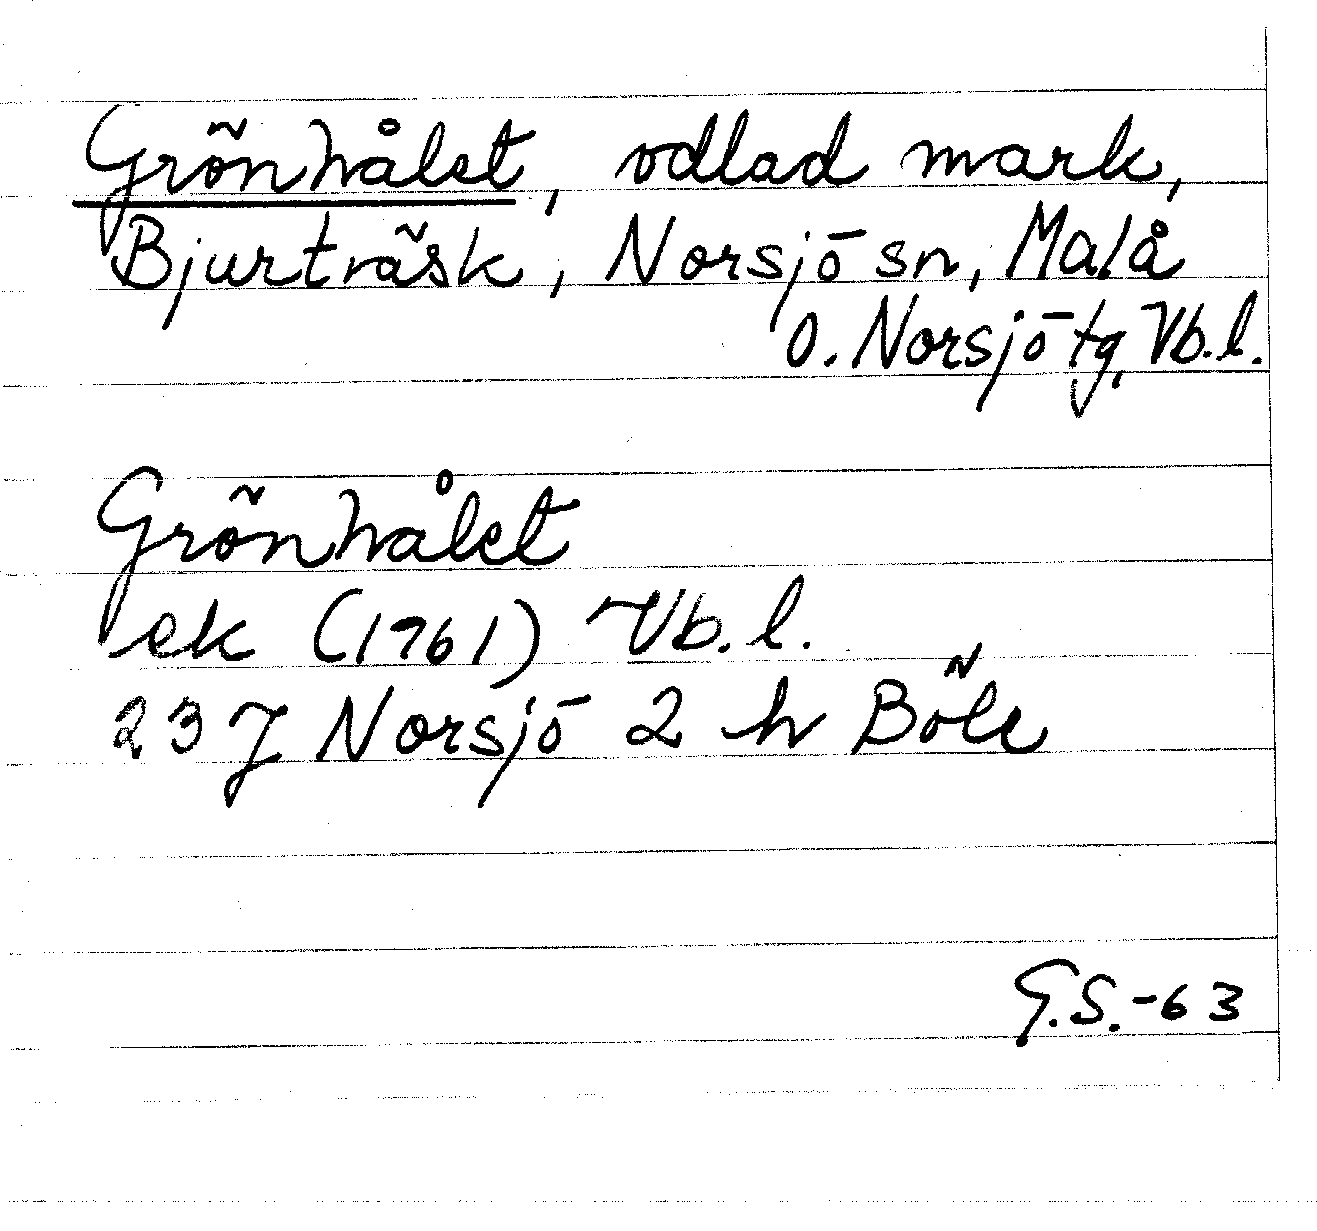 Grönhålet, odlad mark,
Bjurträsk, Norsjö sn, Malå
o. Norsjö tg, Vb.l.
Grönhålet
ek (1961) Vb.l.
23J Norsjö 2 h Böle
G.S.-63